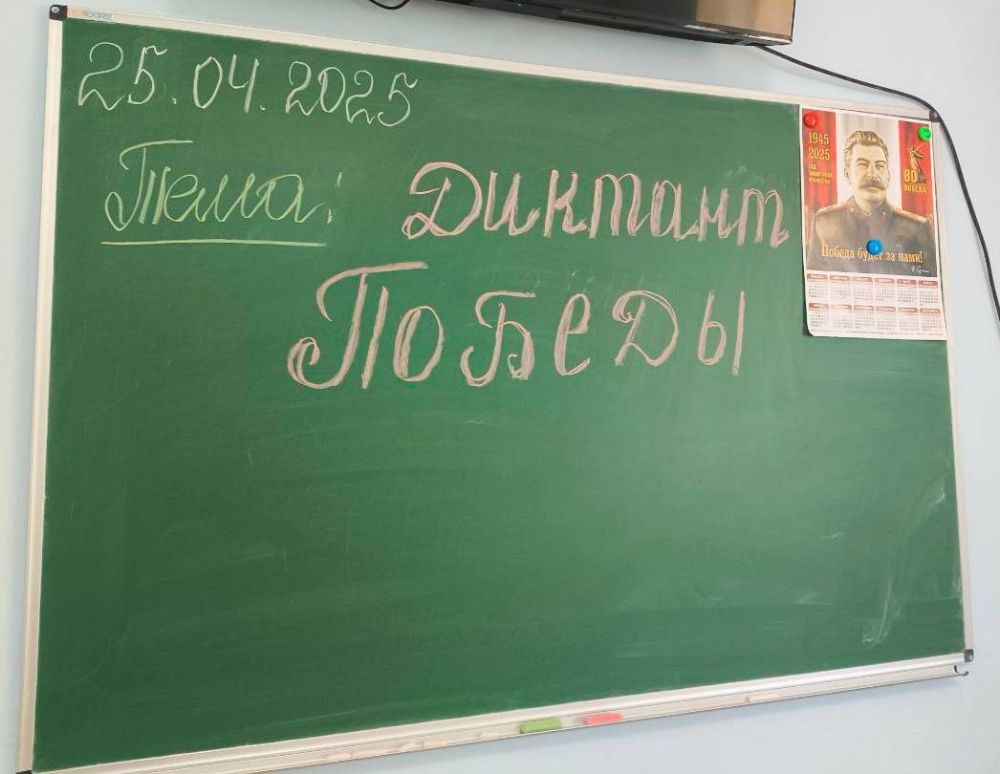 25.04.2025
Тема: Диктант
ПоБеДы
1945
2025
80
ПОБЕДА
Победа будет за нами!